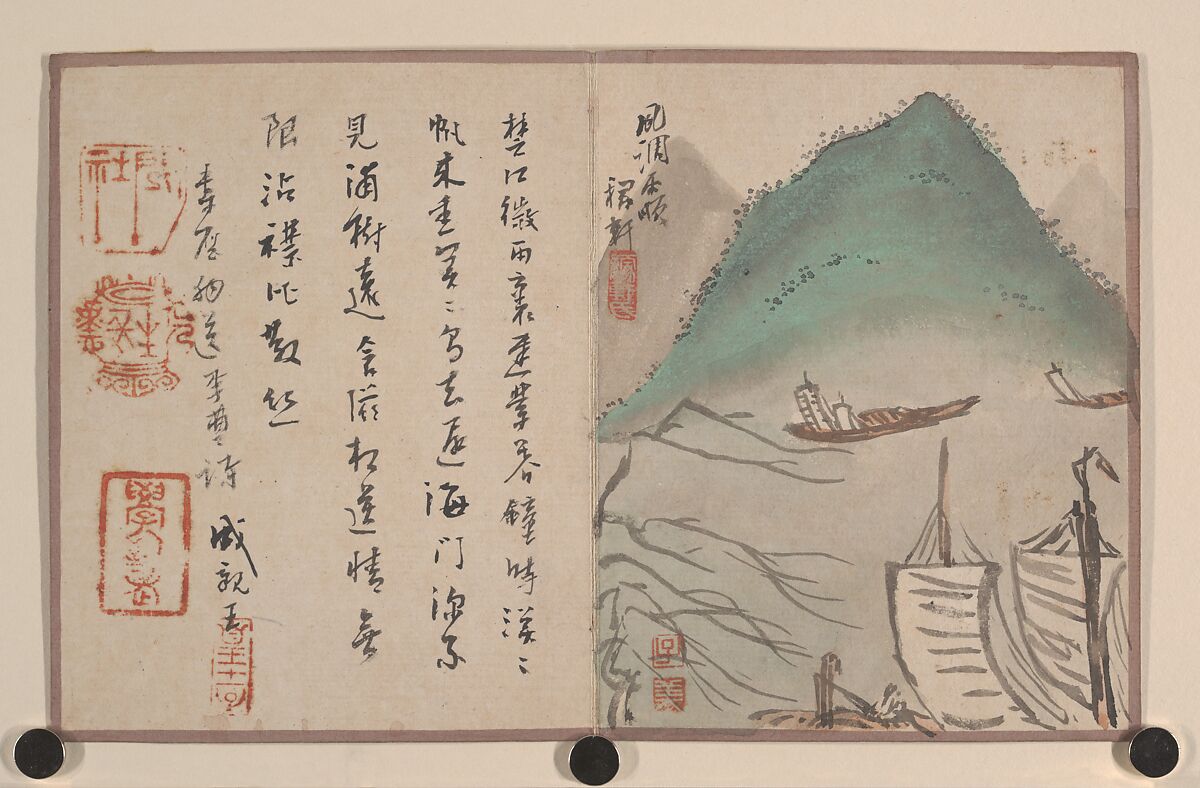 風調雨順
稼軒
楚江微雨裏建業暮鐘時漠〻
帆來重冥〻鳥去遲海門深不
見浦樹遠含滋相送情無
限沾襟比散絲
韋應物送李曹詩
成親王